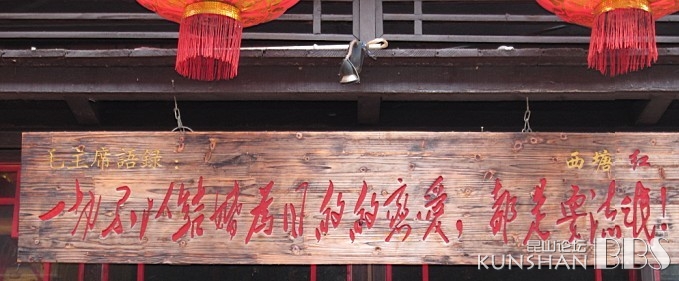 毛主席語錄：
西塘 红
一切不以結婚為目的的戀愛，都是耍流氓！
昆山论坛
KUNSHAN BBS